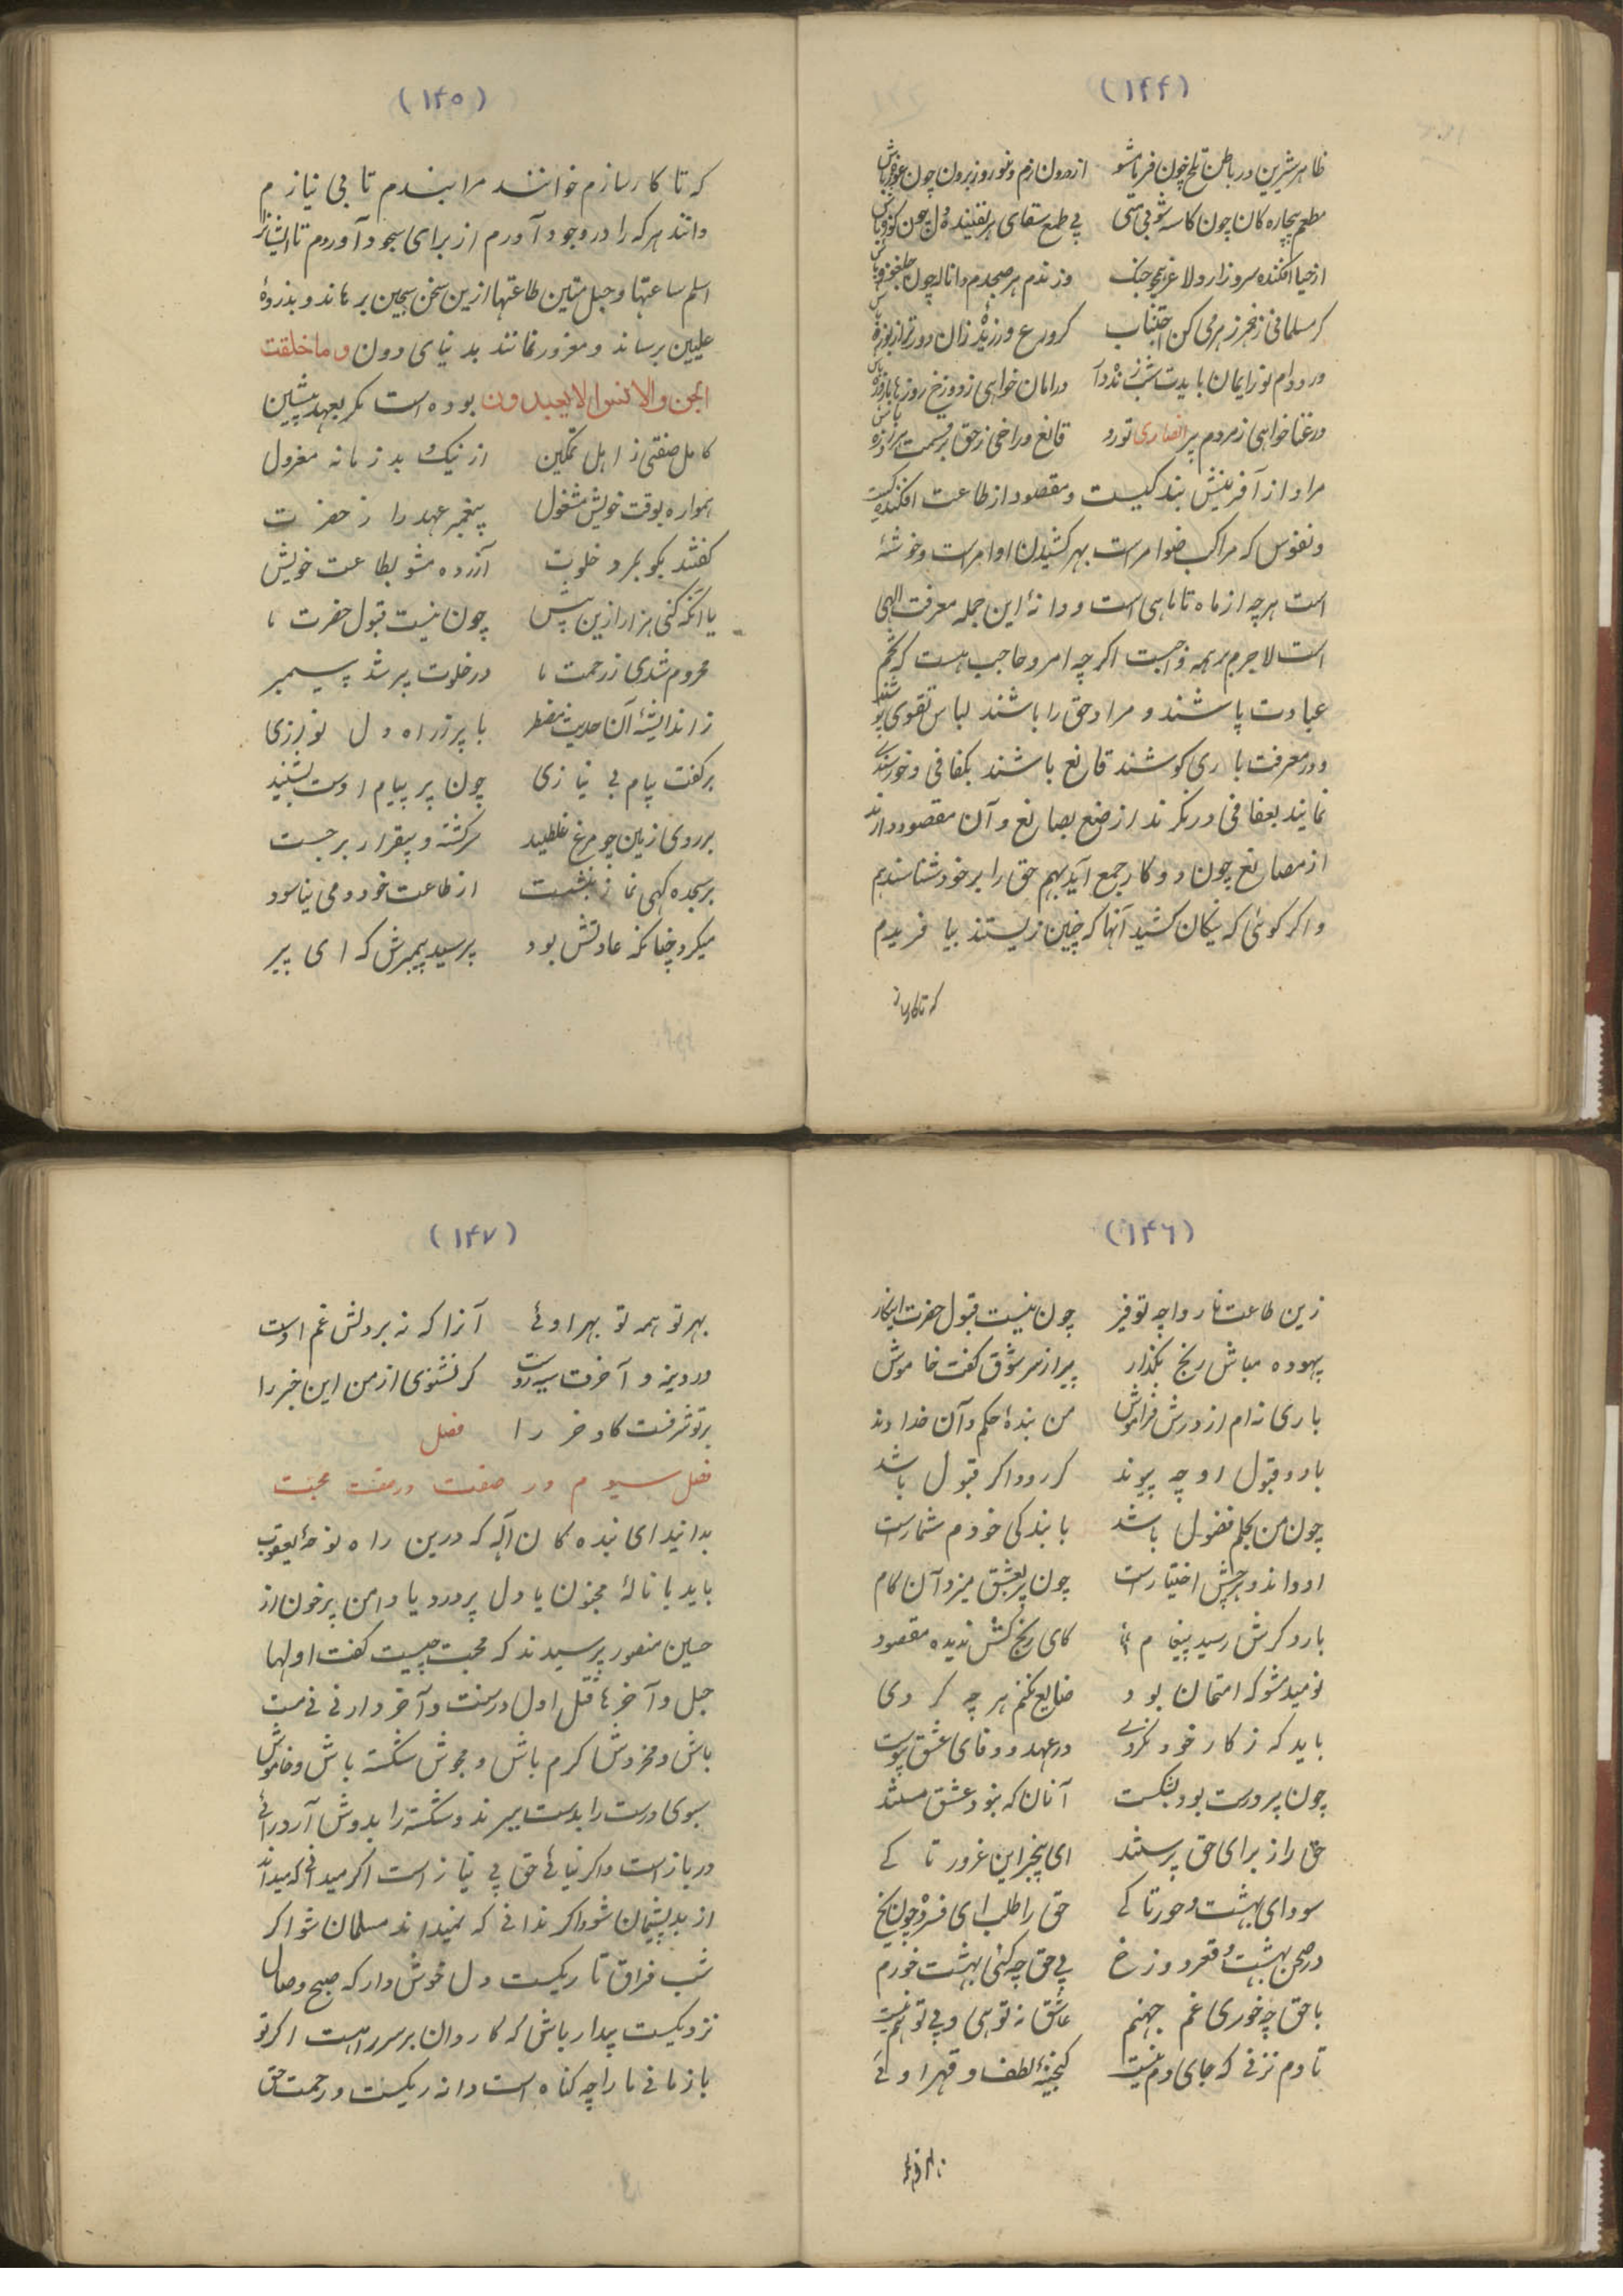 (۱۴۴)
ظاهر شیرین و در باطن تلخ چون خرما مشو از درون نرم و برون چون
مطعم بیچاره کان چون کاسه شو بی منتی بی طمع سقای هر تفتیده دل چون کوزه باش
از حیا افکنده سر و زار و لاغر همچو چنک وز ندم هر صبحدم با ناله چون
کر مسلمانی ز خمر کن اجتناب کر ورع ورزیدهٔ زان دورتر از بوزه باش
ور دوام نور ایمان بایدت شب زنده دار ور امان خواهی ز دوزخ روزها باروزه باش
ور غنا خواهی ز مردم پیر انصاری تو رو قانع و راضی ز حق بر قسمت هر روزه باش
مراد از آفرینش بندکیست و مقصود از طاعت افکندکیست
و نفوس که مراکب ضوامرست بهر کشیدن اوامرست و خوشهٔ
است هرچه از ماه تا ماهی است و دانهٔ این جمله معرفت الهی
است لاجرم بر همه واجبست اکرچه امر و حاجب هست که تخم
عبادت پاشند و مراد حق را باشند لباس تقوی پوشند
و در معرفت باری کوشند قانع باشند بکفافی و خورسندی
نمایند بعفافی در نکرند از صنع بصانع و آن مقصود دارند
از مصانع چون دو کار جمع آید بهم حق را بر خود شناسند هم
و اکر کوئی که نیکان کشید آنها که چنین زیستند بیافریدم
که تا کارساز
(۱۴۵)
که تا کارسازم خوانند مرا بندم تا بی نیازم
دانند هر که را در وجود آورم از برای سجود آوردم تا ایشانرا
اسلم ساعتها و حبل متین طاعتها ازین سخن سجین برهاند و بذروهٔ
علیین برساند و مغرور نمانند بدنیای دون و ما خلقت
الجن والانس الا لیعبدون بوده است مکر بعهد پیشین
کامل صفتی ز اهل تمکین از نیک و بد زمانه معزول
همواره بوقت خویش مشغول پیغمبر عهد را ز حضرت
کفتند بکو بمرد خلوت آزرده مشو بطاعت خویش
یا آنکه کنی هزار ازین بیش چون نیست قبول حضرت ما
محروم شدی ز رحمت ما در خلوت پیر شد پیمبر
ز اندیشهٔ آن حدیث مضطر با پیر ز راه دل نوازی
برکفت پیام بی نیازی چون پیر پیام دوست بشنید
بر روی زمین چو مرغ غلطید سرکشته و بیقرار برجست
بر سجده کهی نماز بنشست از طاعت خود دمی نیاسود
میکرد چنانکه عادتش بود پرسید پیمبرش که ای پیر
(۱۴۶)
زین طاعت ناروا چه توفیر چون نیست قبول حضرت اینکار
بیهوده مباش رنج بکذار پیر از سر شوق کفت خاموش
باری نه ام از درش فراموش من بندهٔ حکم و آن خداوند
با رد و قبول او چه پیوند کر رد و اکر قبول باشد
چون من بحکم فضول باشد با بندکی خودم شمارست
او داند و هرچش اختیارست چون پیر بعشق میزد آن کام
بار دکرش رسید پیغام کای رنج کش ندیده مقصود
نومید مشو که امتحان بود ضایع نکنم هر چه کردی
باید که ز کار خود نکردی در عهد و وفای عشق پیوست
چون پیر درست بود نشکست آنان که بنود عشق مستند
حق را ز برای حق پرستند ای بیخبر این غرور تا کے
سودای بهشت و حور تا کے حق را طلب ای فسرده چون یخ
در صحن بهشت و قعر دوزخ بی حق چه کنی بهشت خورم
با حق چه خوری غم جهنم عاشق نه تو هی و بی تو هم نیست
تا دم نزنی که جای دم نیست کنجینهٔ لطف و قهر او نے
(۱۴۷)
بهر تو همه تو بهر او نے آنرا که نه بر دلش غم اوست
در دنیه و آخرت سیه روست کر نشنوی از من این خبر را
بر تو شرفست کاو خر را فصل
فصل سیوم در صفت در صفت محبت
بدانید ای بنده کان آله که درین راه نوحهٔ یعقوب
باید یا نالهٔ مجنون یا دل پر درد یا دامن پر خون از
حسین منصور پرسیدند که محبت چیست کفت اولها
حبل و آخرها قتل اول درست و آخر دارنی فی مست
باش و مخروش کرم باش و مجوش شکسته باش و خاموش
سبوی درست را بدست برند و شکسته را بدوش آر در آئی
در باز است واکر نیائے حق بی نیاز است اکر میدانی که میداند
از بد پشیمان شو واکر ندانی که نمیداند مسلمان شو اکر
شب فراق تاریکست دل خوش دار که صبح وصال
نزدیکست بیدار باش که کاروان بر سر راهست اکر تو
باز مانی ما را چه کناه است دانه ریکست و رحمت حق